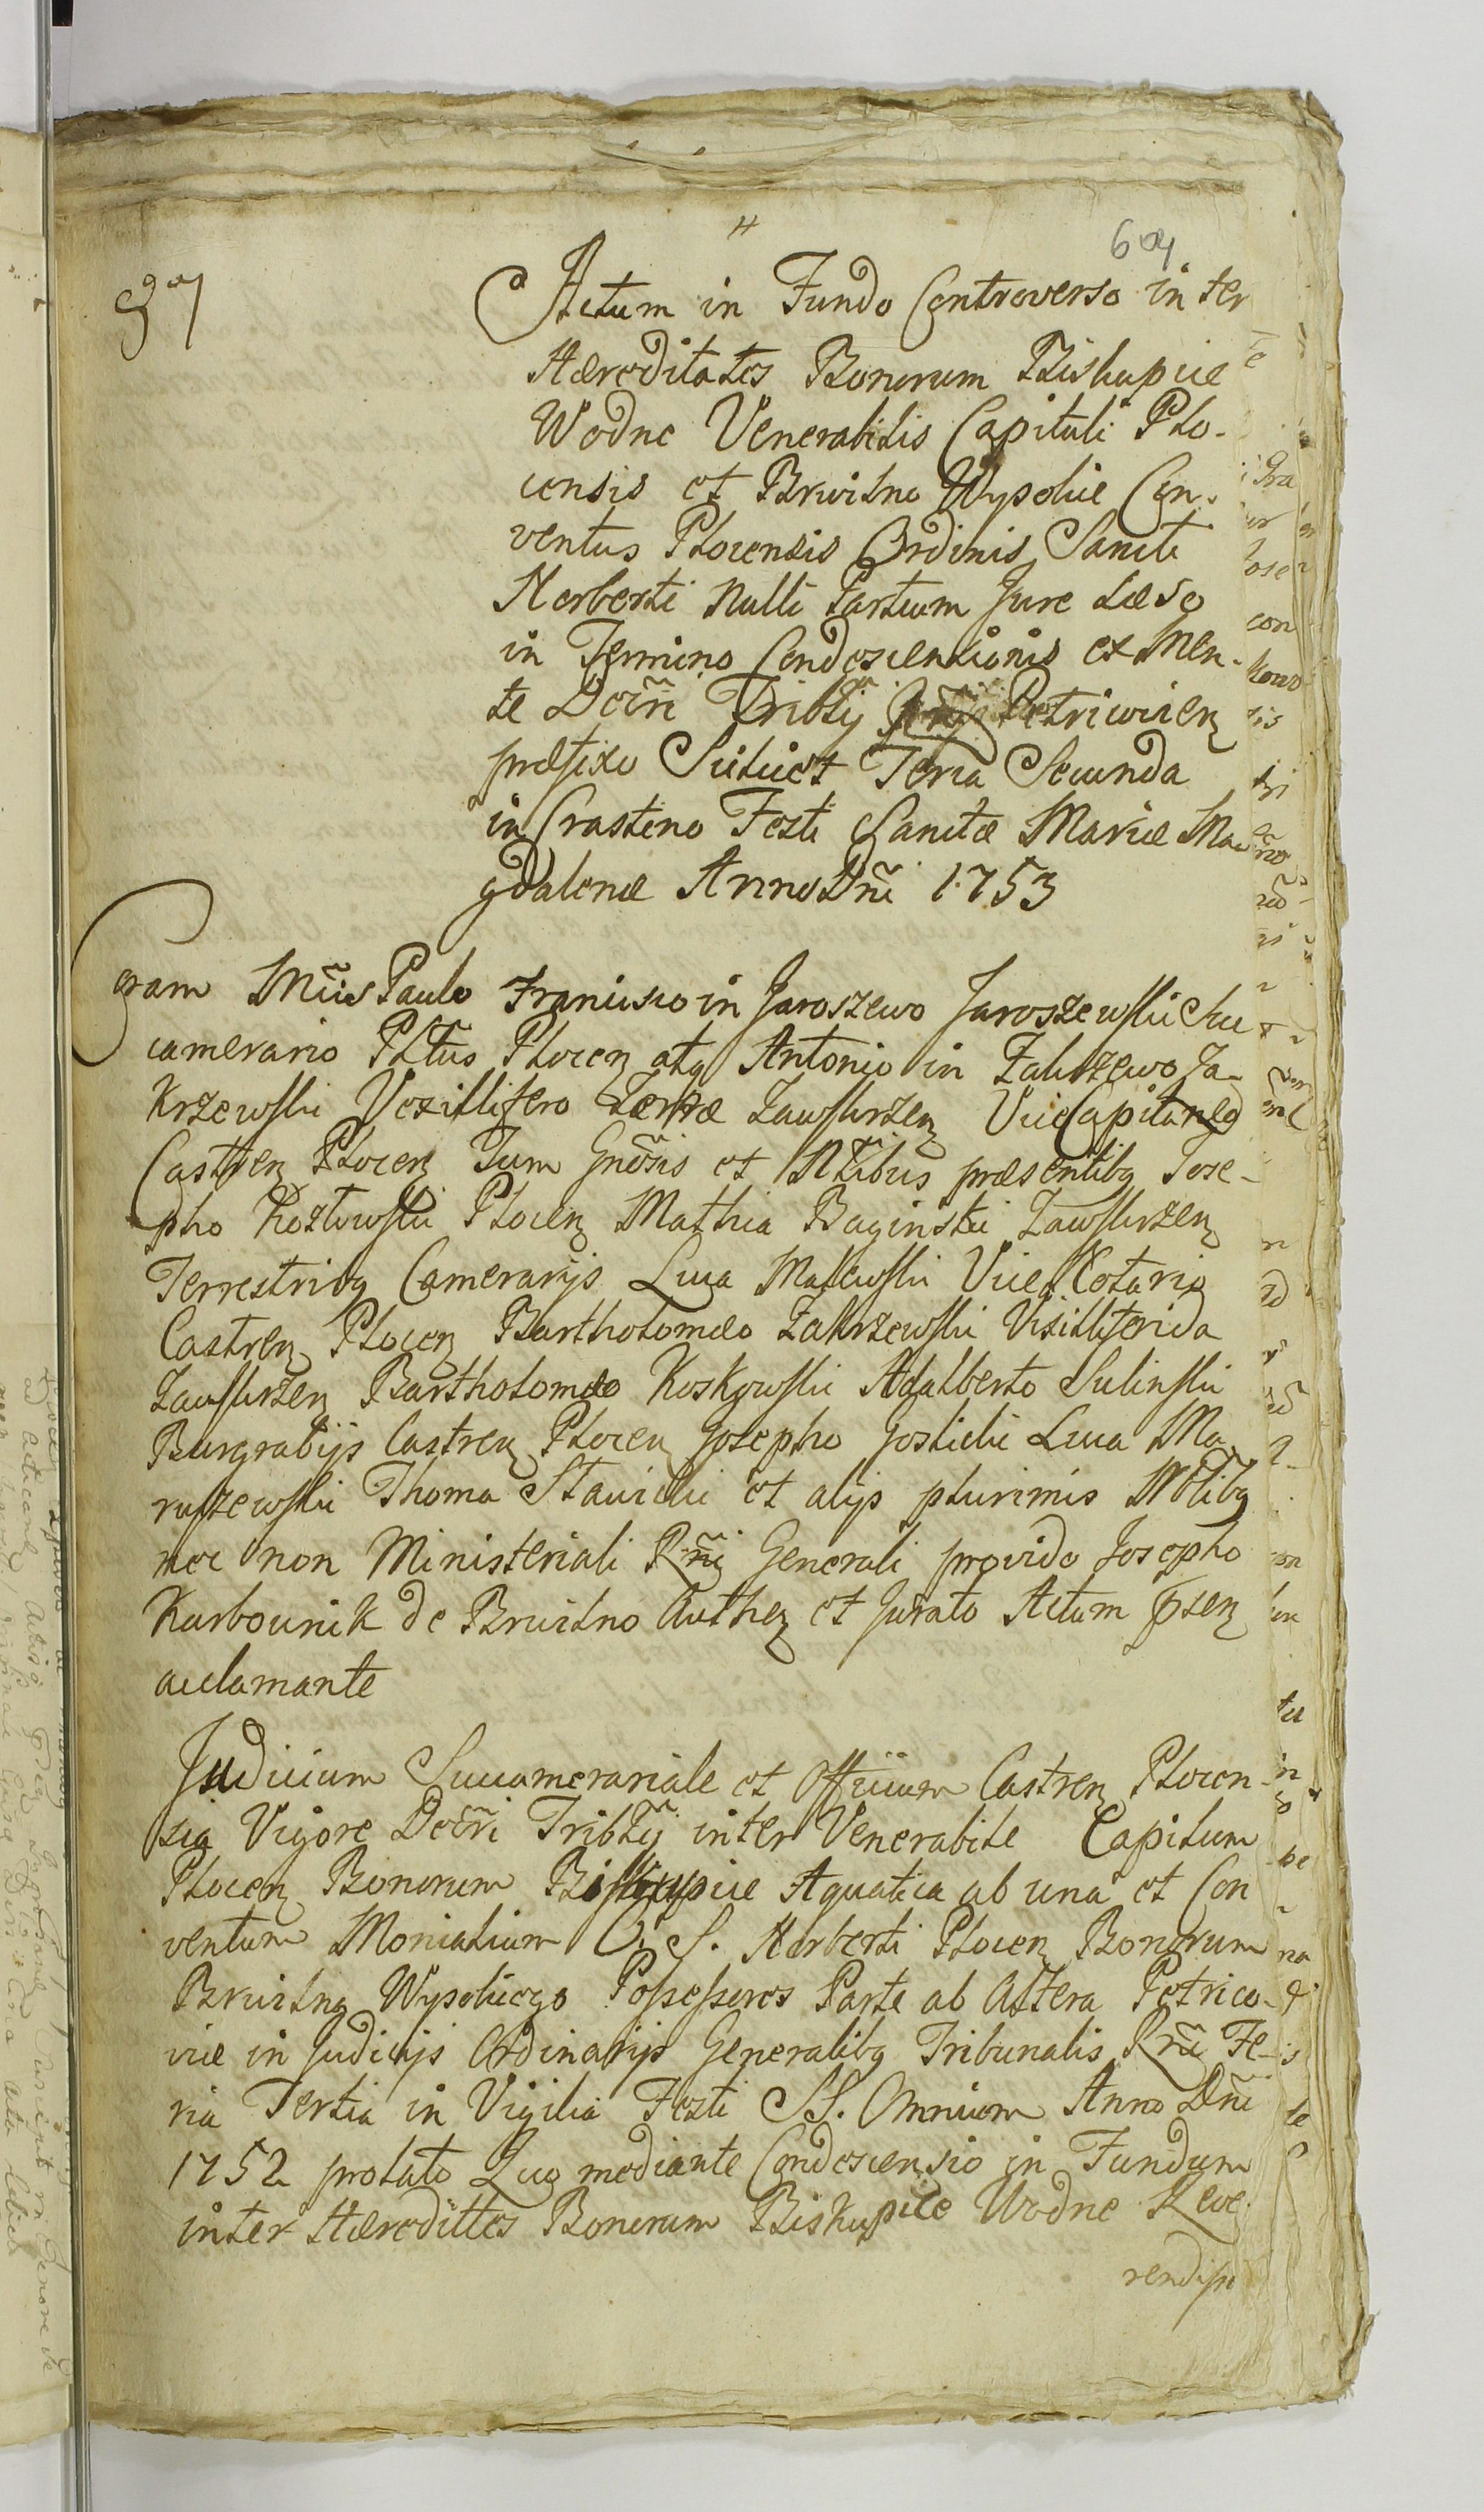 604
97
Actum in Fundo Controverso inter
Hæreditates Bonorum Biskupice
Wodne Venerabilis Capituli Plo-
censis et Brwilno Wysokie Con-
ventus Plocensis Ordinis Sancti
Norberti Nulli Partium Jure Læso
in Termino Condescensionis ex Men-
te Dečri Tribŧij Petricovien
præfixo Scilicet Feria Secunda
in Crastino Festi Sanctæ Mariæ Ma-
gdalenæ Anno Dñi 1753
Coram Mčis Paulo Francisco in Jaroszewo Jaroszewski Suc
camerario Pltus Plocen atq Antonio in Zakrzewo Za-
Krzewski Vexillifero Terræ Zawskrzen ViceCapitaneo
Castren Plocen Tum Gnŏsis et Nŏbilibus præsentibq Jose-
pho Kozłowski Plocen Mathia Baginski Zawskrzen
Terrestribq Camerarijs Luca Malewski Vice Notario
Castren Plocen Bartholomæo Zakrzewski Vixilliferida
Zawskrzen Bartholomæo Koskowski Adalberto Sulinski
Burgrabijs Castren Plocen Josepho Gosticki Luca Ma
ruszewski Thoma Stawicki et alijs plurimis Nŏbilibq
nec non Ministeriali Rñi Generali provido Josepho
Karbownik de Brwilno Authen et Jurato Actum psen
acclamante
Judicium Succamerariale et Officium Castren Plocen-
sia Vigore Dečri Tribŧij inter Venerabile Capitlum
Plocen Bonorum Biskupice Aquatica ab una et Con
ventum Monialium O. S. Norberti Plocen Bonorum
Brwilna Wysokiego Possessores Parte ab Altera Petrico-
viæ in Judicijs Ordinarijs Generalibq Tribunalis Rñi Fe-
ria Tertia in Vigilia Festi SS. Omnium Anno Dñi
1752 prolato Quo mediante Condescensio in Fundum
inter Hæredittes Bonorum Biskupice Wodne Reve-
rendiss